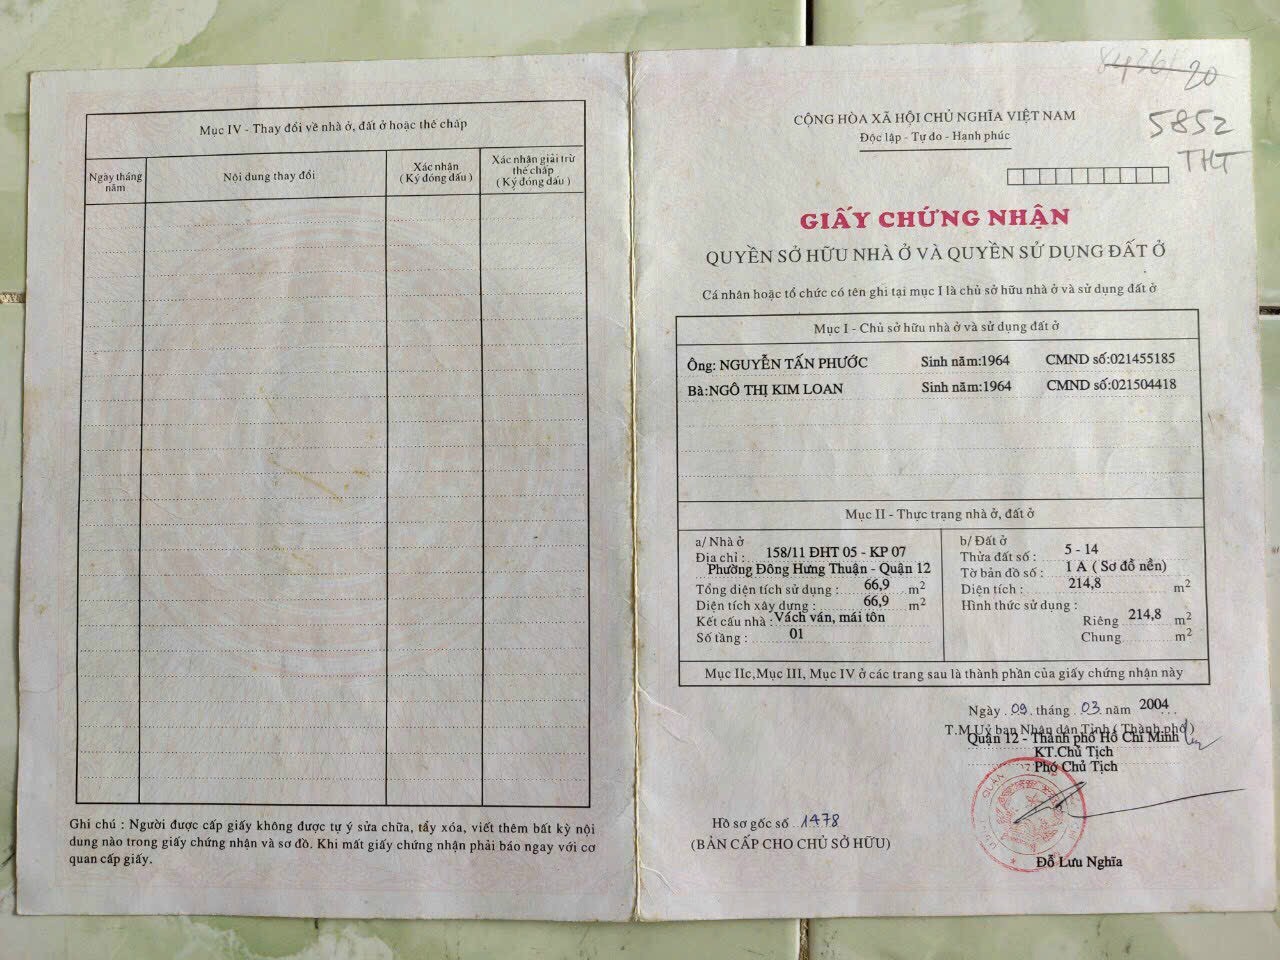 Mục IV - Thay đổi về nhà ở, đất ở hoặc thế chấp
Ngày tháng năm
Nội dung thay đổi
Xác nhận
( Ký đóng dấu )
Xác nhận giải trừ
thế chấp
( Ký đóng dấu )
Ghi chú : Người được cấp giấy không được tự ý sửa chữa, tẩy xóa, viết thêm bất kỳ nội
dung nào trong giấy chứng nhận và sơ đồ. Khi mất giấy chứng nhận phải báo ngay với cơ
quan cấp giấy.
20
5852
THT
CỘNG HÒA XÃ HỘI CHỦ NGHĨA VIỆT NAM
Độc lập - Tự do - Hạnh phúc
GIẤY CHỨNG NHẬN
QUYỀN SỞ HỮU NHÀ Ở VÀ QUYỀN SỬ DỤNG ĐẤT Ở
Cá nhân hoặc tổ chức có tên ghi tại mục I là chủ sở hữu nhà ở và sử dụng đất ở
Mục I - Chủ sở hữu nhà ở và sử dụng đất ở
Ông: NGUYỄN TẤN PHƯỚC Sinh năm:1964 CMND số:021455185
Bà:NGÔ THỊ KIM LOAN Sinh năm:1964 CMND số:021504418
Mục II - Thực trạng nhà ở, đất ở
a/ Nhà ở
Địa chỉ : 158/11 ĐHT 05 - KP 07
Phường Đông Hưng Thuận - Quận 12
Tổng diện tích sử dụng : 66,9 m2
Diện tích xây dựng : 66,9 m2
Kết cấu nhà : Vách ván, mái tôn
Số tầng : 01
b/ Đất ở
Thửa đất số : 5 - 14
Tờ bản đồ số : 1 A ( Sơ đồ nền)
Diện tích : 214,8 m2
Hình thức sử dụng :
Riêng 214,8 m2
Chung m2
Mục IIc,Mục III, Mục IV ở các trang sau là thành phần của giấy chứng nhận này
Ngày 09 tháng 03 năm 2004
T.M Uỷ ban Nhân dân Tỉnh ( Thành phố )
Quận 12 - Thành phố Hồ Chí Minh
KT.Chủ Tịch
Phó Chủ Tịch
Hồ sơ gốc số 1478
(BẢN CẤP CHO CHỦ SỞ HỮU)
Đỗ Lưu Nghĩa